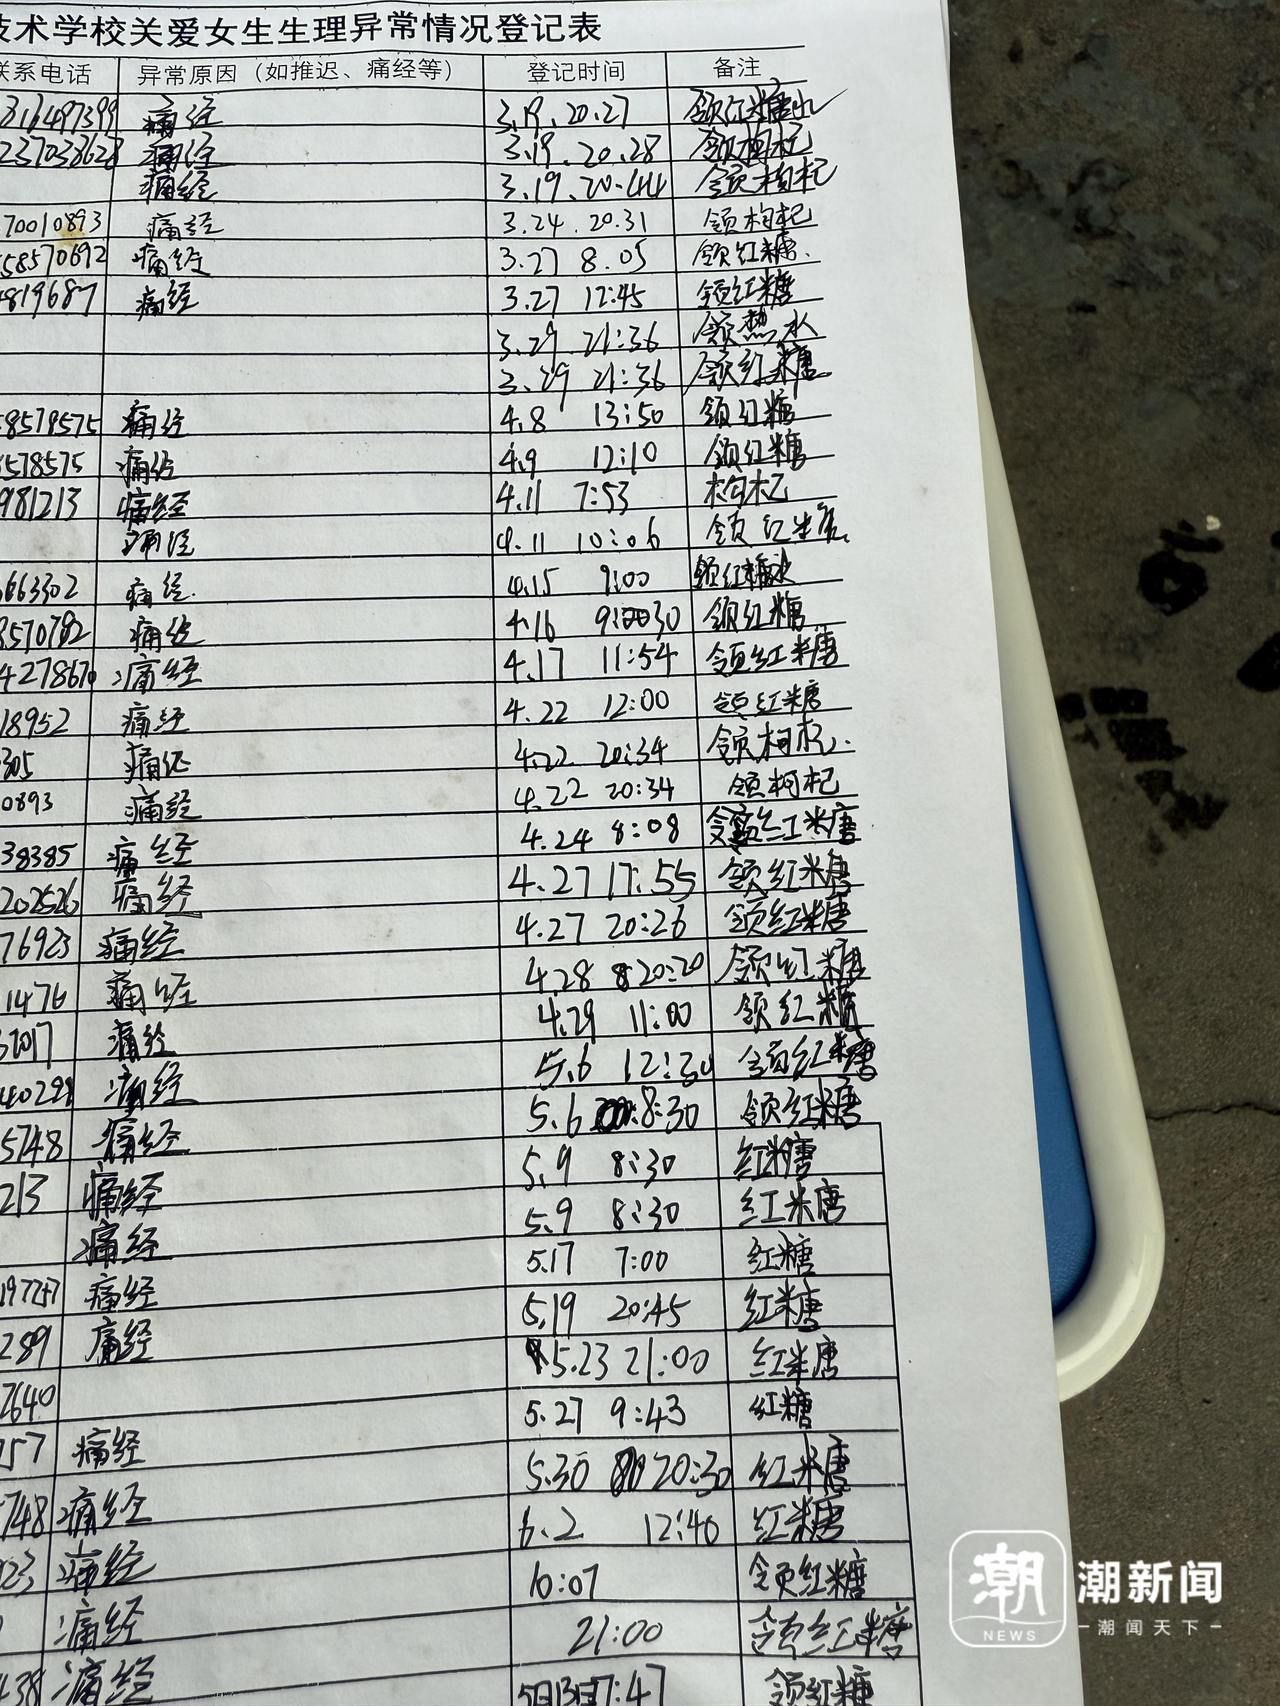 技术学校关爱女生生理异常情况登记表
联系电话 异常原因（如推迟、痛经等） 登记时间 备注
816497399 痛经 3.19.20.27 领红糖水
237038628 痛经 3.19.20.28 领枸杞
痛经 3.19.20.44 领枸杞
70010893 痛经 3.24.20.31 领枸杞
58570692 痛经 3.27 8.05 领红糖.
4819687 痛经 3.27 12:45 领红糖
3.29 21:36 领热水
3.29 21:36 领红糖
8578575 痛经 4.8 13:50 领红糖
578575 痛经 4.9 12:10 领红糖
981213 痛经 4.11 7:53 枸杞
痛经 4.11 10:06 领红糖
663302 痛经. 4.15 9:00 领红糖水
3570782 痛经 4.16 30 领红糖
4278670 痛经 4.17 11:54 领红糖
18952 痛经 4.22 12:00 领红糖
305 痛经 4.22 20:34 领枸杞.
0893 痛经 4.22 20:34 领枸杞
38385 痛经 4.24 8:08 领红糖
202526 痛经 4.27 17:55 领红糖
76923 痛经 4.27 20:26 领红糖
1476 痛经 4.28 20:20 领红糖
32017 痛经 4.29 11:00 领红糖
40298 痛经 5.6 12:30 领红糖
5748 痛经 5.6 8:30 领红糖
213 痛经 5.9 8:30 红糖
痛经 5.9 8:30 红糖
197247 痛经 5.17 7:00 红糖
289 痛经 5.19 20:45 红糖
2640 5.23 21:00 红糖
757 痛经 5.27 9:43 红糖
748 痛经 5.30 20:30 红糖
923 痛经 6.2 12:40 红糖
痛经 10:07 领红糖
438 痛经 21:00 领红糖
7:47 领红糖
潮 NEWS 潮新闻
潮闻天下